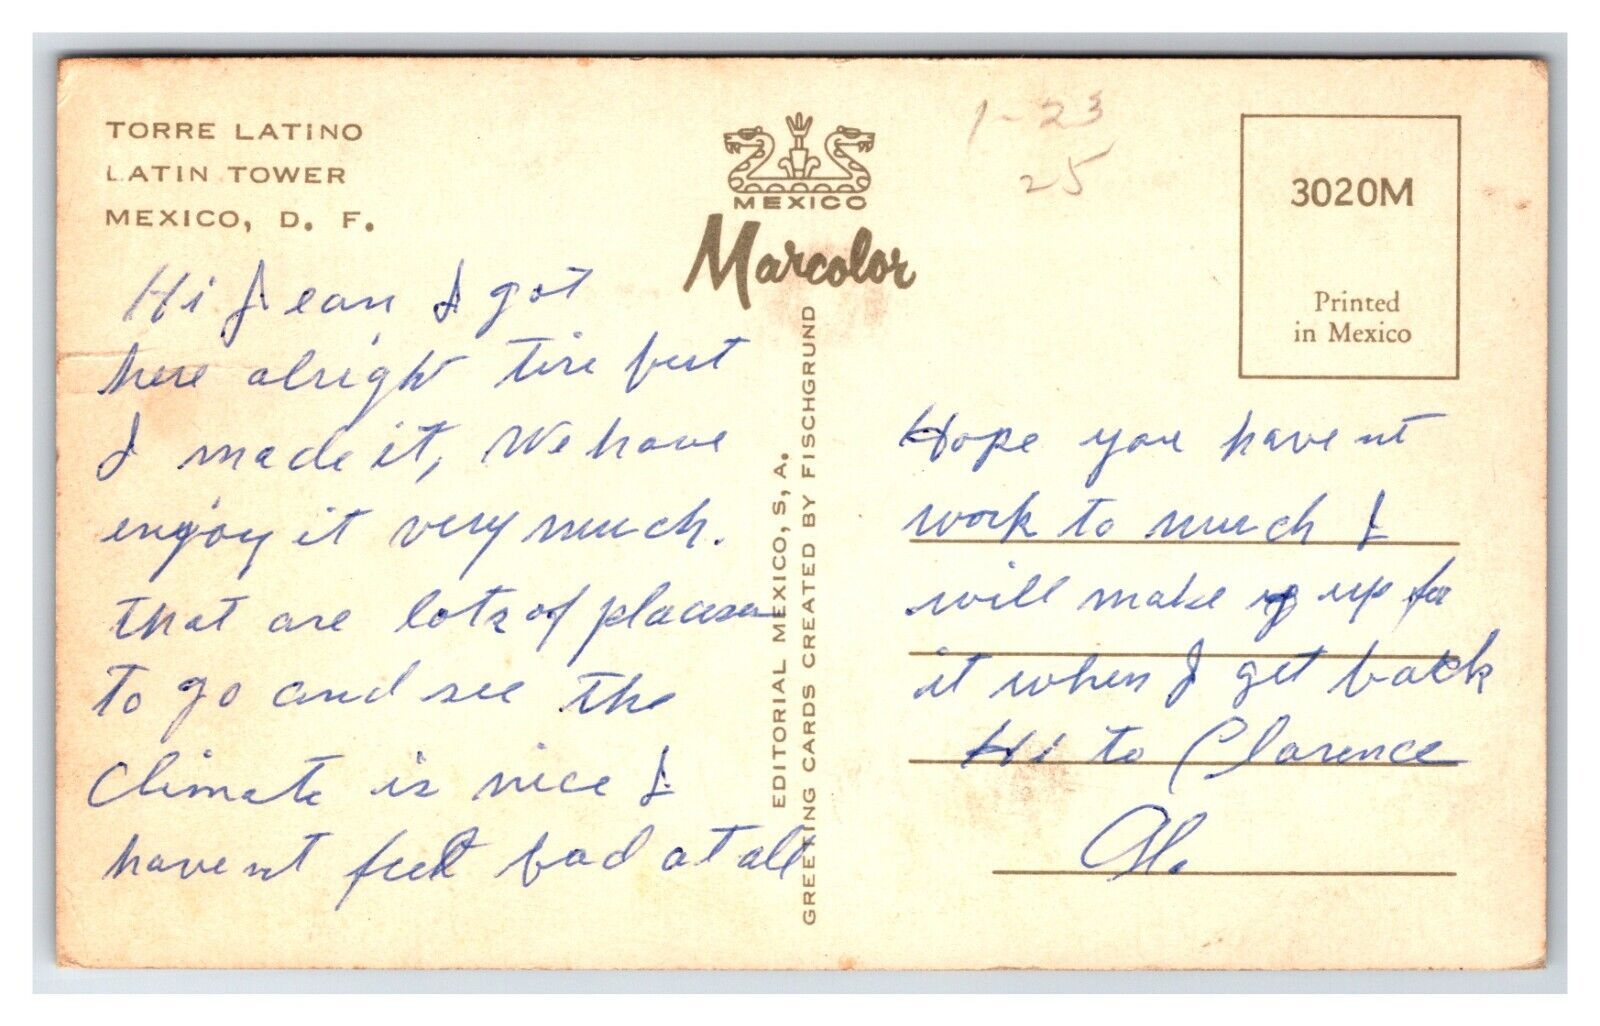 TORRE LATINO
LATIN TOWER
MEXICO, D. F.
Hi Jean, I got
here alright tire but
I made it, We have
enjoy it very much.
that are lots of places
to go and see the
Climate is nice I
havent feelt bad at all
MEXICO
Marcolor
EDITORIAL MEXICO, S, A.
GREETING CARDS CREATED BY FISCHGRUND
1-23
25
3020M
Printed
in Mexico
Hope you havent
work to much I
will make up for
it when I get back
Hi to Clarence
Al.